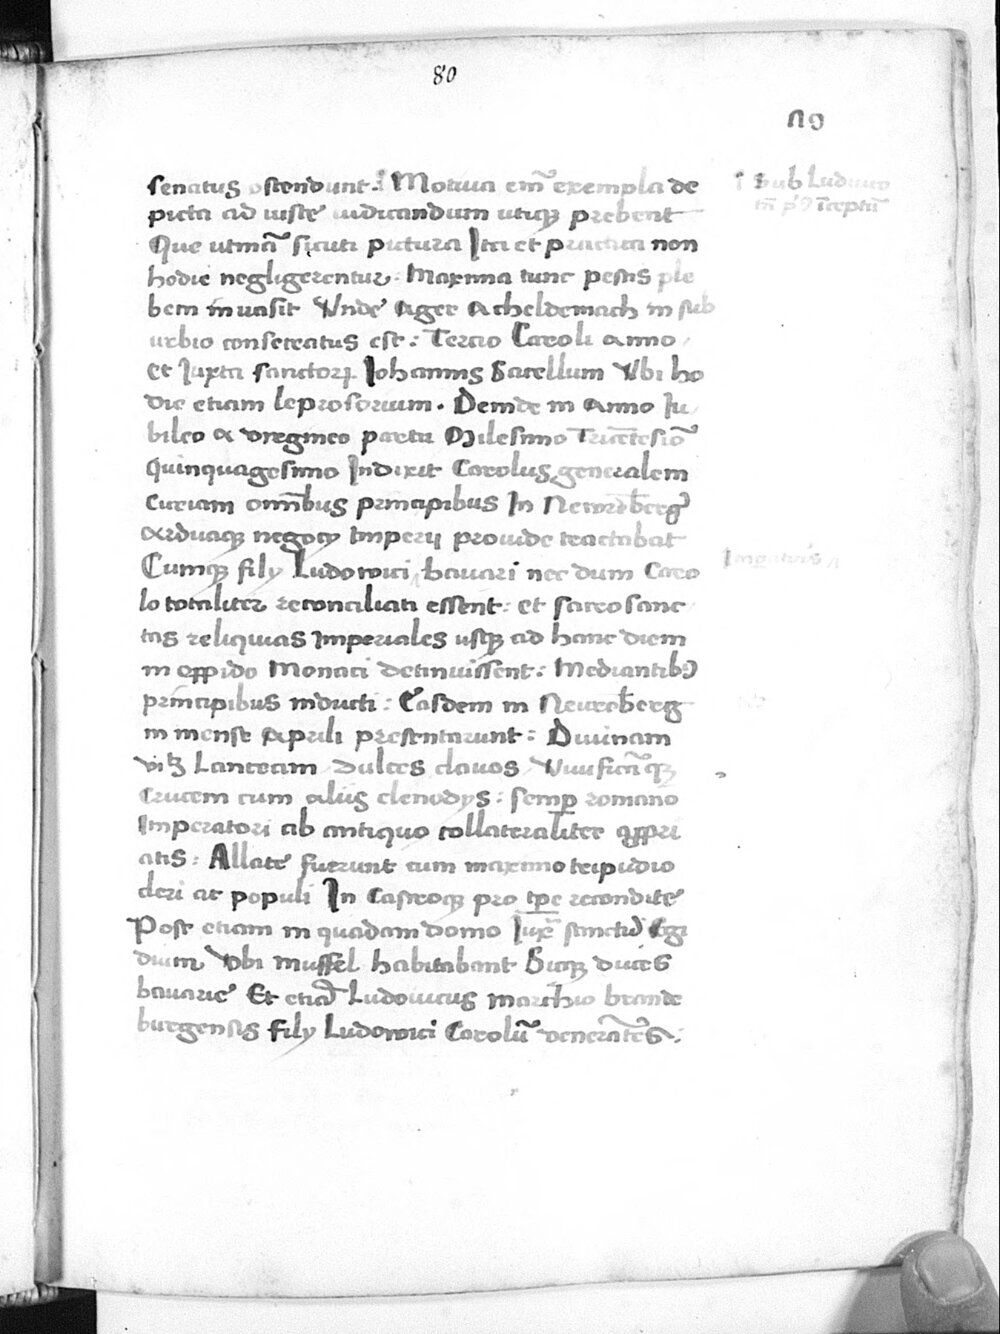 80
senatus ostendunt. Motiua em̄ exempla de
picta ad iuste iudicandum utiqꝫ prebent
Que utinā sicuti pictura Ita et practica non
hodie negligerentur: Maxima tunc pestis ple
bem inuasit Vnde Ager Acheldemach in sub
urbio consecratus est: Tercio Caroli anno
et Iuxta sanctorꝝ Iohannis Sacellum Vbi ho
die etiam leprosorium. Deinde in Anno Iu
bileo a virgineo partu Milesimo Tricētesiō
quinquagesimo Indixit Carolus generalem
curiam om̄ibus principibus In Newrēberg
Arduaqꝫ negocia Imperij prouide tractabat
Cumqꝫ filij Ludowici bauari nec dum Caro
lo totaliter reconciliati essent: et sacrosanc
tas reliquias Imperiales usqꝫ ad hanc diem
in oppido Monaci detinuissent: Mediantibꝰ
principibus inducti: Easdem in Neurēberg
in mense Aprili presentarunt: Diuinam
vitꝫ Lanceam Dulces clauos Viuificāqꝫ
Crucem cum aliis clenodijs: semꝑ romano
Imperatori ab antiquo collateraliter ꝓpri
atis: Allate fuerunt cum maximo tripudio
cleri ac populi In Castroqꝫ pro tp̄e recondite
Post etiam in quadam domo Iux̄ sanctū Egi
dium Vbi Muffel habitabant Sicqꝫ duces
bauarie Et etiā Ludouicus marchio brande
burgensis filij Ludowici Carolū venerātes:
Sub Ludwico
Imperatoris